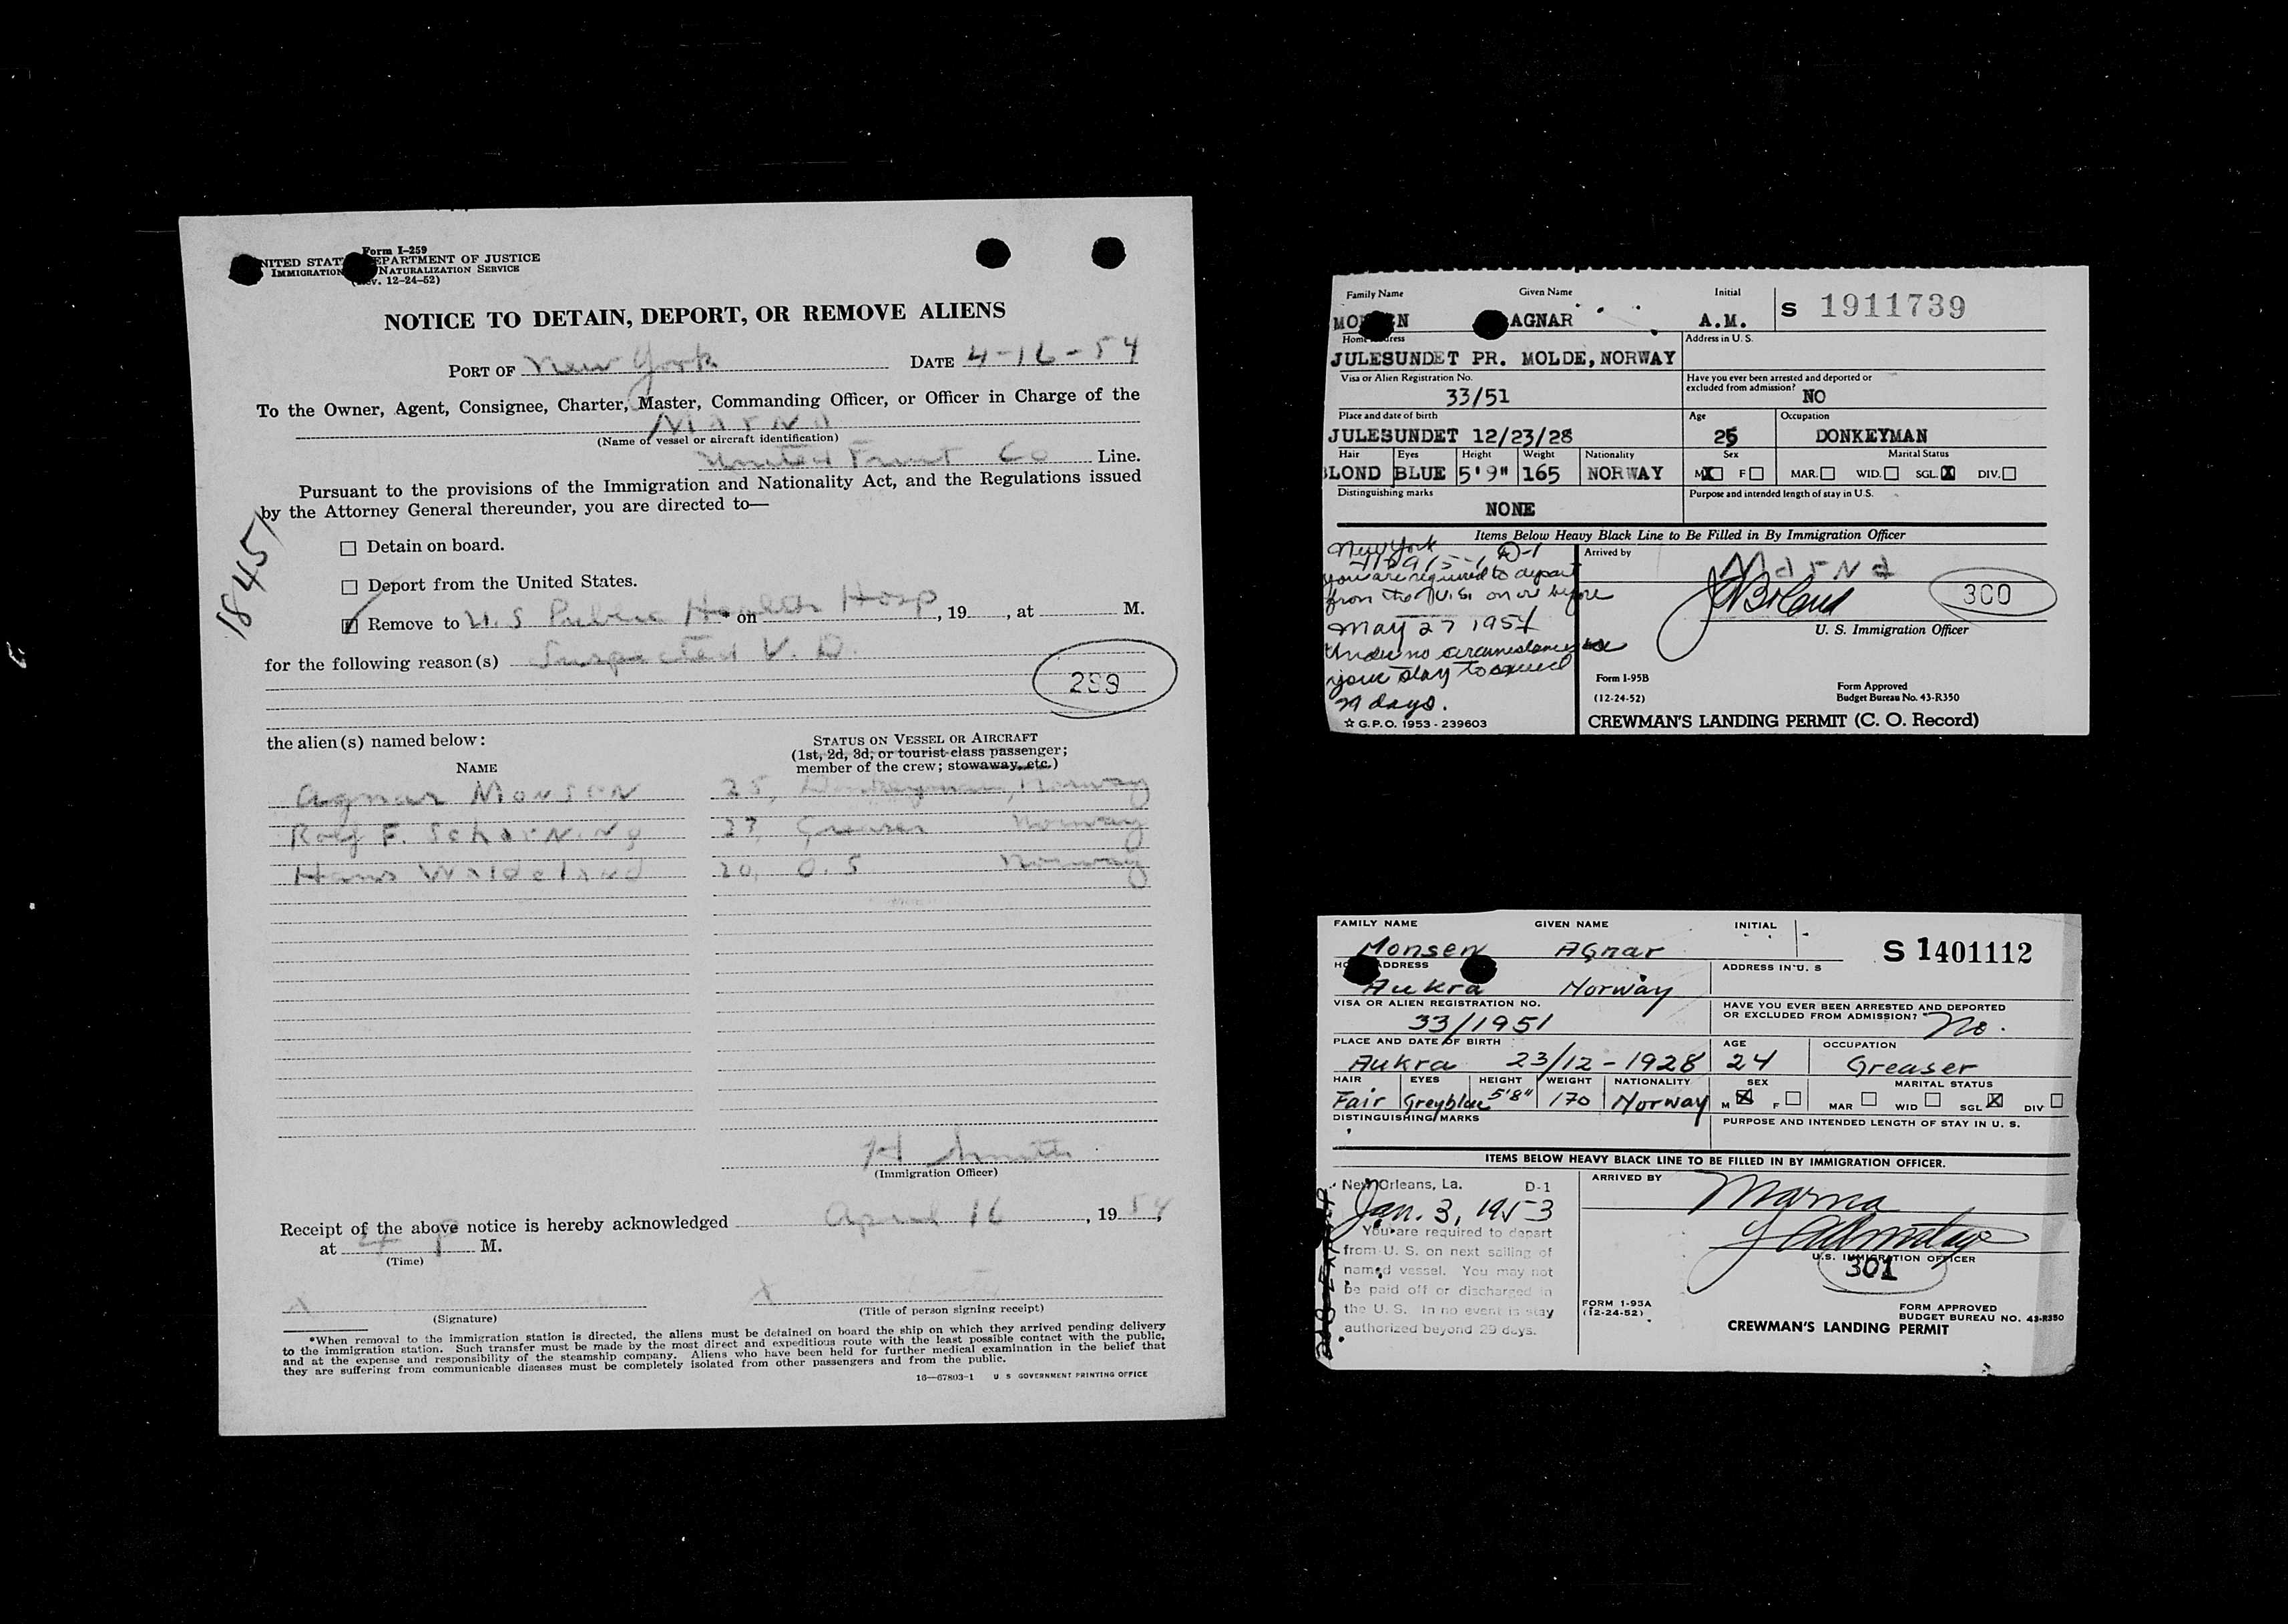 Form I-259
UNITED STATES DEPARTMENT OF JUSTICE
IMMIGRATION NATURALIZATION SERVICE
(Rev. 12-24-52)
NOTICE TO DETAIN, DEPORT, OR REMOVE ALIENS
PORT OF New York DATE 4-16-54
To the Owner, Agent, Consignee, Charter, Master, Commanding Officer, or Officer in Charge of the
Marna
(Name of vessel or aircraft identification)
United Fruit Co Line.
Pursuant to the provisions of the Immigration and Nationality Act, and the Regulations issued
by the Attorney General thereunder, you are directed to—
18451
Detain on board.
Deport from the United States.
Remove to U.S Public Health Hosp * on , 19 , at M.
for the following reason(s) Suspected V. D.
299
the alien(s) named below:
STATUS ON VESSEL OR AIRCRAFT
(1st, 2d, 3d, or tourist-class passenger;
member of the crew; stowaway, etc.)
NAME
Agnar Monsen 25, Donkeyman, Norway
Rolf F. Scharning 27, Greaser Norway
Hans Waldeland 20, O.S Norway
H Smith
(Immigration Officer)
Receipt of the above notice is hereby acknowledged April 16, 1954,
at 4 P M.
(Time)
X X
(Signature) (Title of person signing receipt)
*When removal to the immigration station is directed, the aliens must be detained on board the ship on which they arrived pending delivery
to the immigration station. Such transfer must be made by the most direct and expeditious route with the least possible contact with the public,
and at the expense and responsibility of the steamship company. Aliens who have been held for further medical examination in the belief that
they are suffering from communicable diseases must be completely isolated from other passengers and from the public.
16—67803-1 U S GOVERNMENT PRINTING OFFICE
Family Name Given Name Initial
MONSEN AGNAR A.M. S 1911739
Home Address Address in U. S.
JULESUNDET PR. MOLDE, NORWAY
Visa or Alien Registration No. Have you ever been arrested and deported or
excluded from admission?
33/51 NO
Place and date of birth Age Occupation
JULESUNDET 12/23/28 25 DONKEYMAN
Hair Eyes Height Weight Nationality Sex Marital Status
BLOND BLUE 5'9" 165 NORWAY M X F MAR. WID. SGL. X DIV.
Distinguishing marks Purpose and intended length of stay in U.S.
NONE
Items Below Heavy Black Line to Be Filled in By Immigration Officer
New York D-1
you are required to depart
from the U.S. on or before
May 27 1954
Under no circumstances is
your stay to exceed
29 days.
☆ G.P.O. 1953-239603
Arrived by
Marna
300
U. S. Immigration Officer
Form I-95B
(12-24-52)
Form Approved
Budget Bureau No. 43-R350
CREWMAN'S LANDING PERMIT (C. O. Record)
FAMILY NAME GIVEN NAME INITIAL
Monsen Agnar S 1401112
HOME ADDRESS ADDRESS IN U. S
Aukra Norway
VISA OR ALIEN REGISTRATION NO. HAVE YOU EVER BEEN ARRESTED AND DEPORTED
OR EXCLUDED FROM ADMISSION?
33/1951 No.
PLACE AND DATE OF BIRTH AGE OCCUPATION
Aukra 23/12-1928 24 Greaser
HAIR EYES HEIGHT WEIGHT NATIONALITY SEX MARITAL STATUS
Fair Greyblue 5'8" 170 Norway M X F MAR WID SGL X DIV
DISTINGUISHING MARKS PURPOSE AND INTENDED LENGTH OF STAY IN U. S.
ITEMS BELOW HEAVY BLACK LINE TO BE FILLED IN BY IMMIGRATION OFFICER.
New Orleans, La. D-1
Jan. 3, 1953
You are required to depart
from U. S. on next sailing of
named vessel. You may not
be paid off or discharged in
the U. S. In no event is stay
authorized beyond 29 days.
ARRIVED BY
Marna
U.S. IMMIGRATION OFFICER
301
FORM I-95A
(12-24-52)
FORM APPROVED
BUDGET BUREAU NO. 43-R350
CREWMAN'S LANDING PERMIT